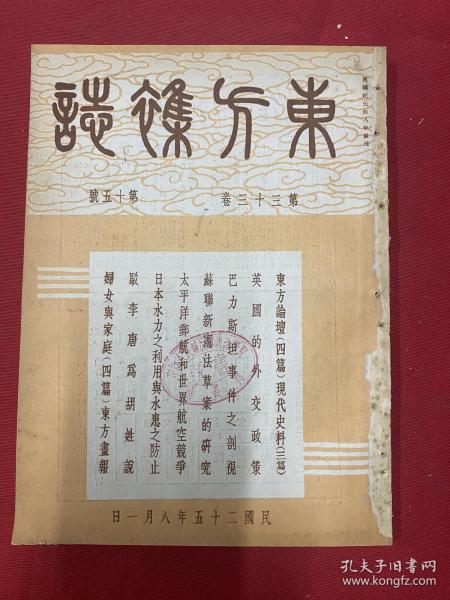 東方雜誌
第三十三卷 第十五號
東方論壇(四篇)現代史料(三篇)
英國的外交政策
巴力斯坦事件之剖視
蘇聯新憲法草案的研究
太平洋郵航和世界航空競爭
日本水力之利用與水患之防止
駁李唐為胡姓說
婦女與家庭(四篇)東方畫報
民國二十五年八月一日
孔夫子旧书网
www.kongfz.com